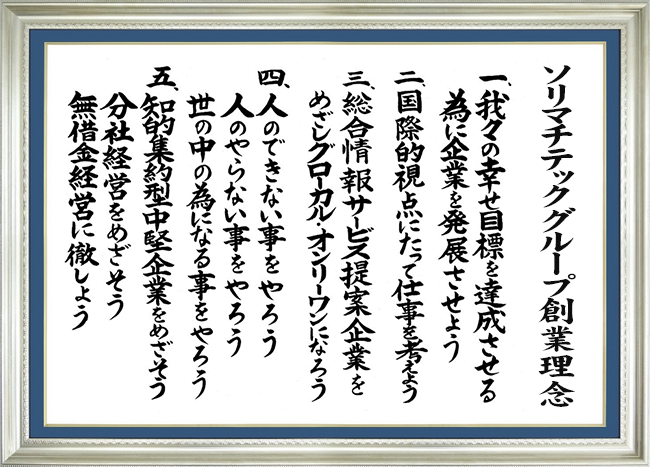 ソリマチテックグループ創業理念
一、我々の幸せ目標を達成させる
為に企業を発展させよう
二、国際的視点にたって仕事を考えよう
三、総合情報サービス提案企業を
めざしグローカル・オンリーワンになろう
四、人のできない事をやろう
人のやらない事をやろう
世の中の為になる事をやろう
五、知的集約型中堅企業をめざそう
分社経営をめざそう
無借金経営に徹しよう